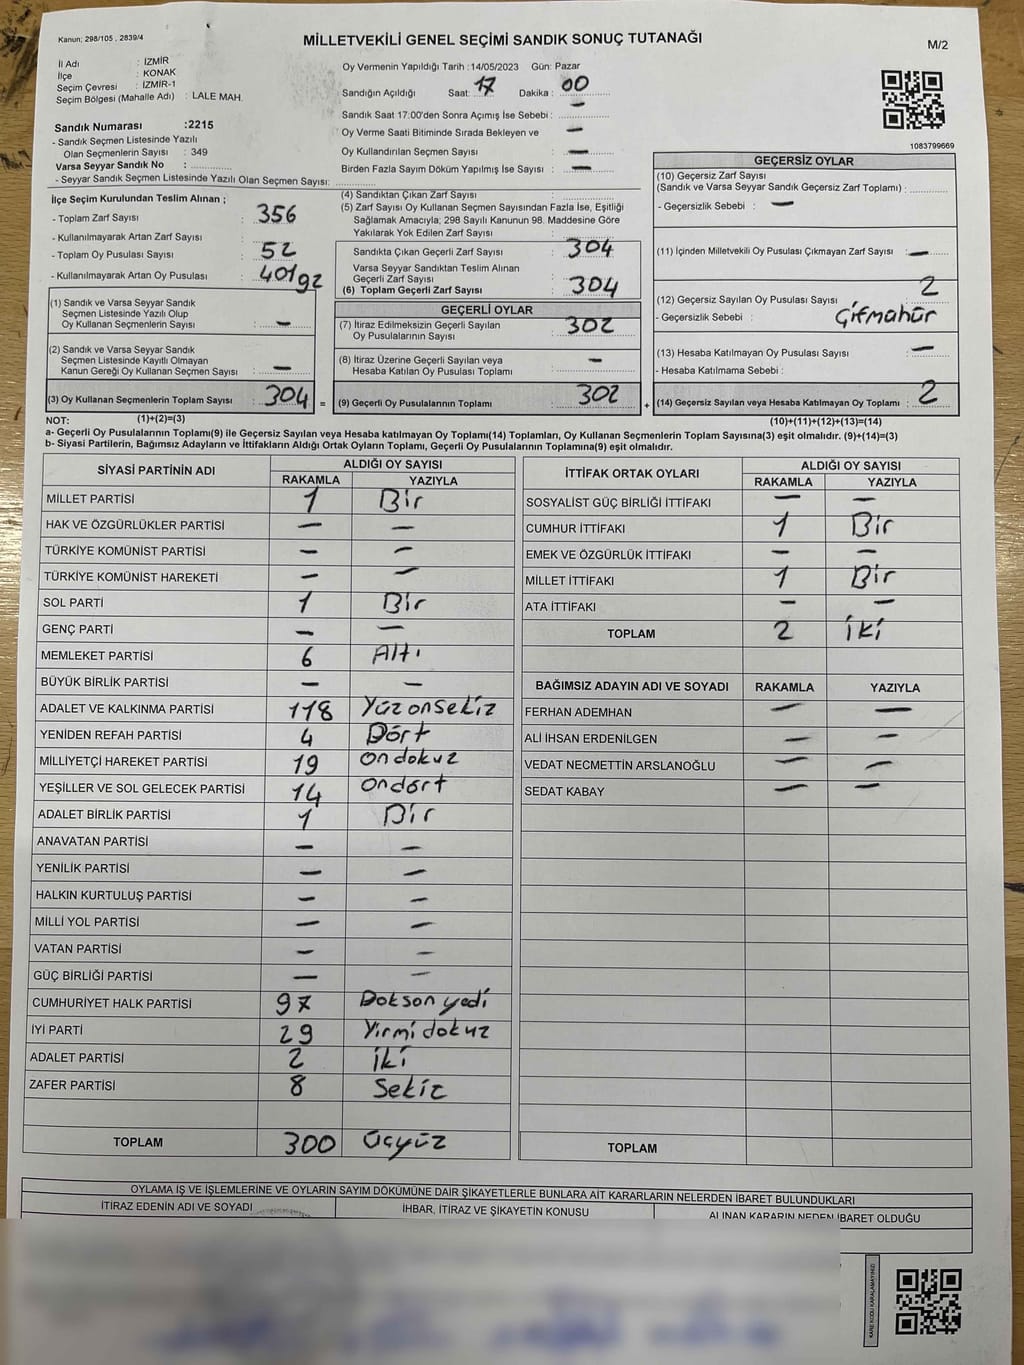 Kanun: 298/105 , 2839/4
MİLLETVEKİLİ GENEL SEÇİMİ SANDIK SONUÇ TUTANAĞI
M/2
İl Adı : İZMİR
İlçe : KONAK
Seçim Çevresi : İZMİR-1
Seçim Bölgesi (Mahalle Adı) : LALE MAH.
Sandık Numarası :2215
- Sandık Seçmen Listesinde Yazılı
Olan Seçmenlerin Sayısı : 349
Varsa Seyyar Sandık No :
- Seyyar Sandık Seçmen Listesinde Yazılı Olan Seçmen Sayısı:
Oy Vermenin Yapıldığı Tarih :14/05/2023 Gün: Pazar
Sandığın Açıldığı Saat: 17 Dakika : 00
Sandık Saat 17:00'den Sonra Açımış İse Sebebi : —
Oy Verme Saati Bitiminde Sırada Bekleyen ve —
Oy Kullandırılan Seçmen Sayısı : —
Birden Fazla Sayım Döküm Yapılmış İse Sayısı : —
1083799669
İlçe Seçim Kurulundan Teslim Alınan ;
- Toplam Zarf Sayısı : 356
- Kullanılmayarak Artan Zarf Sayısı : 52
- Toplam Oy Pusulası Sayısı : 401
- Kullanılmayarak Artan Oy Pusulası : 92
(1) Sandık ve Varsa Seyyar Sandık
Seçmen Listesinde Yazılı Olup
Oy Kullanan Seçmenlerin Sayısı : —
(2) Sandık ve Varsa Seyyar Sandık
Seçmen Listesinde Kayıtlı Olmayan
Kanun Gereği Oy Kullanan Seçmen Sayısı : —
(3) Oy Kullanan Seçmenlerin Toplam Sayısı : 304 =
(4) Sandıktan Çıkan Zarf Sayısı :
(5) Zarf Sayısı Oy Kullanan Seçmen Sayısından Fazla İse, Eşitliği
Sağlamak Amacıyla; 298 Sayılı Kanunun 98. Maddesine Göre
Yakılarak Yok Edilen Zarf Sayısı :
Sandıkta Çıkan Geçerli Zarf Sayısı : 304
Varsa Seyyar Sandıktan Teslim Alınan
Geçerli Zarf Sayısı :
(6) Toplam Geçerli Zarf Sayısı : 304
GEÇERLİ OYLAR
(7) İtiraz Edilmeksizin Geçerli Sayılan
Oy Pusulalarının Sayısı : 302
(8) İtiraz Üzerine Geçerli Sayılan veya
Hesaba Katılan Oy Pusulası Toplamı : —
(9) Geçerli Oy Pusulalarının Toplamı : 302 +
GEÇERSİZ OYLAR
(10) Geçersiz Zarf Sayısı
(Sandık ve Varsa Seyyar Sandık Geçersiz Zarf Toplamı) :
- Geçersizlik Sebebi : —
(11) İçinden Milletvekili Oy Pusulası Çıkmayan Zarf Sayısı : —
(12) Geçersiz Sayılan Oy Pusulası Sayısı : 2
- Geçersizlik Sebebi : Çifmahür
(13) Hesaba Katılmayan Oy Pusulası Sayısı : —
- Hesaba Katılmama Sebebi :
(14) Geçersiz Sayılan veya Hesaba Katılmayan Oy Toplamı : 2
NOT: (1)+(2)=(3) (10)+(11)+(12)+(13)=(14)
a- Geçerli Oy Pusulalarının Toplamı(9) ile Geçersiz Sayılan veya Hesaba katılmayan Oy Toplamı(14) Toplamları, Oy Kullanan Seçmenlerin Toplam Sayısına(3) eşit olmalıdır. (9)+(14)=(3)
b- Siyasi Partilerin, Bağımsız Adayların ve İttifakların Aldığı Ortak Oyların Toplamı, Geçerli Oy Pusulalarının Toplamına(9) eşit olmalıdır.
SİYASİ PARTİNİN ADI ALDIĞI OY SAYISI
RAKAMLA YAZIYLA
MİLLET PARTİSİ 1 Bir
HAK VE ÖZGÜRLÜKLER PARTİSİ — —
TÜRKİYE KOMÜNİST PARTİSİ — —
TÜRKİYE KOMÜNİST HAREKETİ — —
SOL PARTİ 1 Bir
GENÇ PARTİ — —
MEMLEKET PARTİSİ 6 Altı
BÜYÜK BİRLİK PARTİSİ — —
ADALET VE KALKINMA PARTİSİ 118 Yüzonsekiz
YENİDEN REFAH PARTİSİ 4 Dört
MİLLİYETÇİ HAREKET PARTİSİ 19 Ondokuz
YEŞİLLER VE SOL GELECEK PARTİSİ 14 Ondört
ADALET BİRLİK PARTİSİ 1 Bir
ANAVATAN PARTİSİ — —
YENİLİK PARTİSİ — —
HALKIN KURTULUŞ PARTİSİ — —
MİLLİ YOL PARTİSİ — —
VATAN PARTİSİ — —
GÜÇ BİRLİĞİ PARTİSİ — —
CUMHURİYET HALK PARTİSİ 97 Dokson yedi
İYİ PARTİ 29 Yirmi dokuz
ADALET PARTİSİ 2 İki
ZAFER PARTİSİ 8 Sekiz
TOPLAM 300 Üçyüz
İTTİFAK ORTAK OYLARI ALDIĞI OY SAYISI
RAKAMLA YAZIYLA
SOSYALİST GÜÇ BİRLİĞİ İTTİFAKI — —
CUMHUR İTTİFAKI 1 Bir
EMEK VE ÖZGÜRLÜK İTTİFAKI — —
MİLLET İTTİFAKI 1 Bir
ATA İTTİFAKI — —
TOPLAM 2 İki
BAĞIMSIZ ADAYIN ADI VE SOYADI RAKAMLA YAZIYLA
FERHAN ADEMHAN — —
ALİ İHSAN ERDENİLGEN — —
VEDAT NECMETTİN ARSLANOĞLU — —
SEDAT KABAY — —
TOPLAM
OYLAMA İŞ VE İŞLEMLERİNE VE OYLARIN SAYIM DÖKÜMÜNE DAİR ŞİKAYETLERLE BUNLARA AİT KARARLARIN NELERDEN İBARET BULUNDUKLARI
İTİRAZ EDENİN ADI VE SOYADI İHBAR, İTİRAZ VE ŞİKAYETİN KONUSU ALINAN KARARIN NEDEN İBARET OLDUĞU
KARE KODU KARALAMAYINIZ!